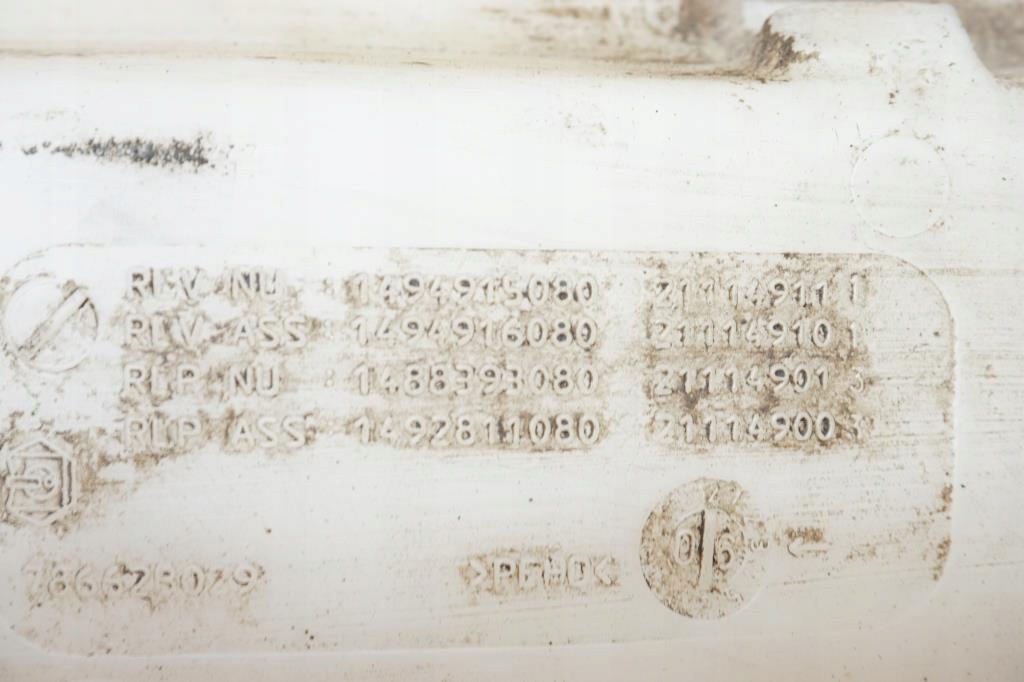 RLV NU : 1494915080 21114911 1
RLV ASS : 1494916080 21114910 1
RLP NU : 1488393080 21114901 3
RLP ASS : 1492811080 21114900 3
>PEHD<
06